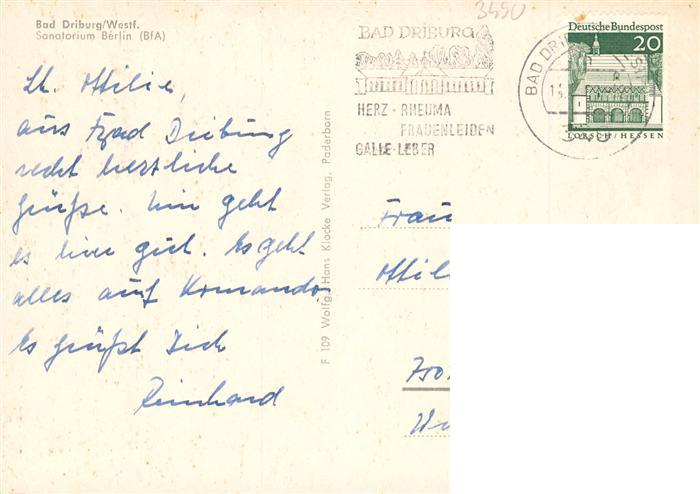 Bad Driburg/Westf.
Sanatorium Berlin (BfA)
3490
BAD DRIBURG
HERZ · RHEUMA
FRAUENLEIDEN
GALLE-LEBER
BAD DRI
Deutsche Bundespost
20
LORSCH/HESSEN
Lb. Ottilie,
aus Bad Driburg
recht herzliche
Grüße. Mir geht
es hier gut. Es geht
alles auf Komando.
Es grüßt Dich
Reinhard
F 109 Wolfg. Hans Klocke Verlag, Paderborn
Frau
Ottil